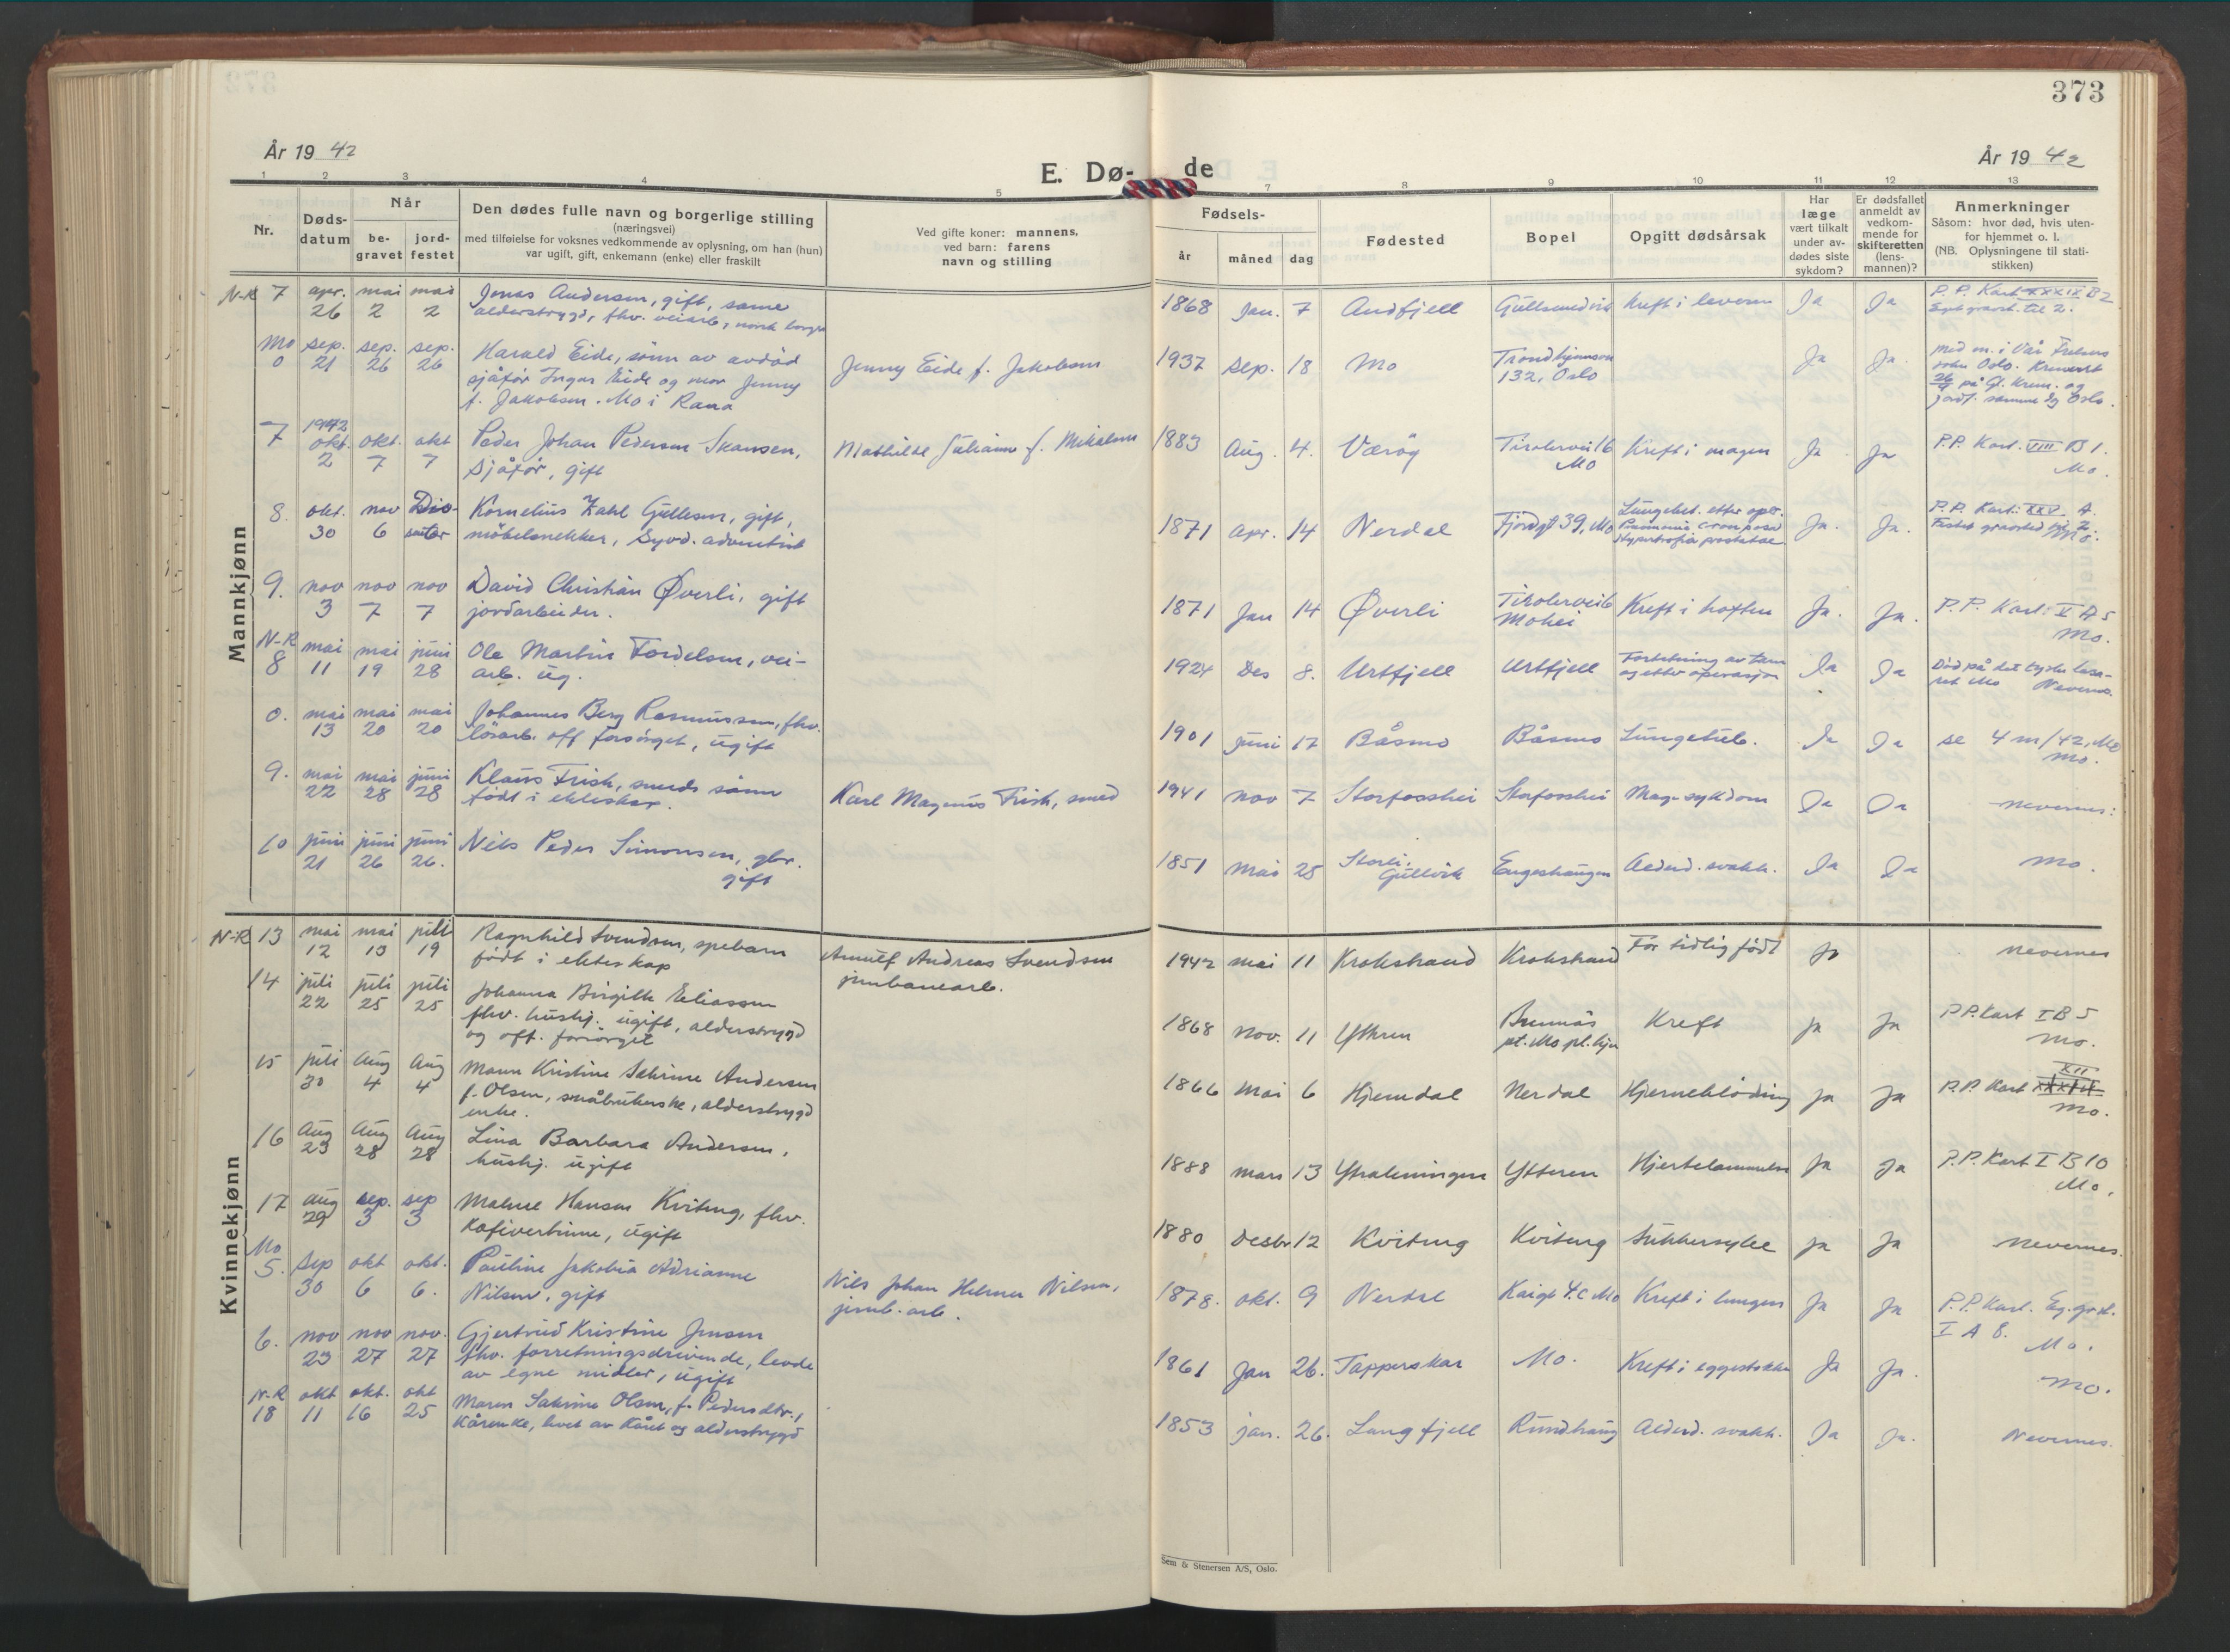 373
År 19 42
E. Dø- de
År 19 42
1 2 3 4 5 7 8 9 10 11 12 13
Nr.
Døds-
datum
Når
be-
gravet
jord-
festet
Den dødes fulle navn og borgerlige stilling
(næringsvei)
med tilføielse for voksnes vedkommende av oplysning, om han (hun)
var ugift, gift, enkemann (enke) eller fraskilt
Ved gifte koner: mannens,
ved barn: farens
navn og stilling
Fødsels-
år måned dag
Fødested
Bopel
Opgitt dødsårsak
Har
læge
vært tilkalt
under av-
dødes siste
sykdom?
Er dødsfallet
anmeldt av
vedkom-
mende for
skifteretten
(lens-
mannen)?
Anmerkninger
Såsom: hvor død, hvis uten-
for hjemmet o. l.
(NB. Oplysningene til stati-
stikken)
Mannkjønn
N-R 7 apr. mai mai Jonas Andersen, gift, same
26 2 2 alderstrygd, fhv. veiarb., norsk
1868 Jan. 7 Andfjell Gullsmedvik Kreft i leveren Ja Ja P. P. Kart B 2
Mo sep. sep. sep. Harald Eide, sønn av avdød
0 21 26 26 sjåfør Ingar Eide og mor Jenny
f. Jakobsen. Mo i Rana
Jenny Eide f. Jakobsen
1937 sep. 18 Mo Trondhjemsvn
132, Oslo Ja Ja. i Vår Frelsers
Oslo. Kremert
26 på Gl. Krem. og
jordf. samme dg Oslo.
1942
7 okt. okt. okt Peder Johan Pedersen Skansen,
2 7 7 sjåfør, gift
Mathilde Juliane f. Mikalsen
1883 Aug. 4. Værøy Tirolervei 16
Mo Kreft i magen Ja Ja P.P. Kart. VIII B 1.
Mo.
8. okt. nov Dis- Kornelius Zahl Gullesen, gift,
30 6 senter møbelsnekker, Syvd. adventist
1871 apr. 14 Nerdal Fjordgt 39, Mo Lungebet. etter oper.
Pneumonia crouposa
Hypertrofia prostatae Ja. Ja. P.P. Kart: XXV. A.
9. nov nov nov David Christian Øverli, gift
3 7 7 jordarbeider.
1871 Jan 14 Øverli Tirolervei 6
Mohei Kreft i hoften Ja. Ja. P.P. Kart: V A 5
Mo.
N-R mai mai juni Ole Martin Fordelsen, vei-
8 11 19 28 arb. ug.
1924 Des 8. Urtfjell Urtfjell Forbening av tarm
og etter operasjon Ja Ja Død på det tyske lasa-
ret Mo Nevernes.
0. mai mai mai Johannes Berg Rasmussen, fhv.
13 20 20 løsarb. off forsørget, ugift
1901 juni 17 Båsmo Båsmo Lungetub. Ja Ja se 4 m/42, Mo
Mo.
9. mai mai juni Klaus Frish, smeds sønn
22 28 28 født i ekteskap.
Karl Magnus Frish, smed
1941 nov 7 Storfosshei Storfosshei Magesykdom Ja Ja Nevernes.
10 juni juni juni Nils Peder Simonsen, gbr.
21 26 26. gift
1851 Mai 25 Storli,
Gullvik Engeshaugen Alderd. svakh. Ja Ja Mo.
Kvinnekjønn
N-R 13 mai mai juli Ragnhild Svendsen, spebarn
12 13 19 født i ekteskap
Arnulf Andreas Svendsen
jernbanearb.
1942 mai 11 Krokstrand Krokstrand For tidlig født Ja Nevernes
14 juli juli juli Johanna Birgitte Eliassen
22 25 25 fhv. hushj. ugift, alderstrygd
og off. forsørget
1868 nov. 11 Ytteren Brennås
pt. Mo pl. hjem Kreft Ja Ja P.P. Kart I B 5
Mo.
15 juli Aug Aug Maren Kristine Sakrine Andersen
30 4 4 f. Olsen, småbrukerske, alderstrygd
enke.
1866 mai 6 Hjemdal Nerdal Hjerneblødning Ja Ja XII
P.P. Kart
Mo.
16 Aug Aug Aug Lina Barbara Andersen,
23 28 28 hushj. ugift
1888 mars 13 Ytterleningen Ytteren Hjertelammelse Ja Ja P.P. Kart I B 10
Mo.
17 aug sep. sep Malene Hansen Kviteng, fhv.
29 3 3 kafévertinne, ugift
1880 Desbr 12 Kviteng Kviteng Sukkersyke Ja Ja Nevernes.
Mo
5. sep okt okt. Pauline Jakobia Adrianne
30 6 6. Nilsen, gift
Nils Johan Helmer Nilsen,
jernb. arb.
1878. okt. 9 Nerdal Kaigt 4.c Mo Kreft i lungen Ja Ja P.P. Kart. Eg. gr.st.
I A 8. Mo.
6. nov nov nov. Gjertrud Kristine Jensen
23 27 27 fhv. forretningsdrivende, levde
av egne midler, ugift
1861 Jan 26. Tapperskar Mo. Kreft i eggestokken Ja Ja. Mo.
N-R okt okt. okt Maren Sakrine Olsen, f. Pedersdtr.,
18 11 16 25 kårenke, levet av kåret og alderstrygd
1853 jan. 26. Langfjell Rundhaug Alderd. svakh. Ja Ja. Nevernes.
Sem & Stenersen A/S, Oslo.